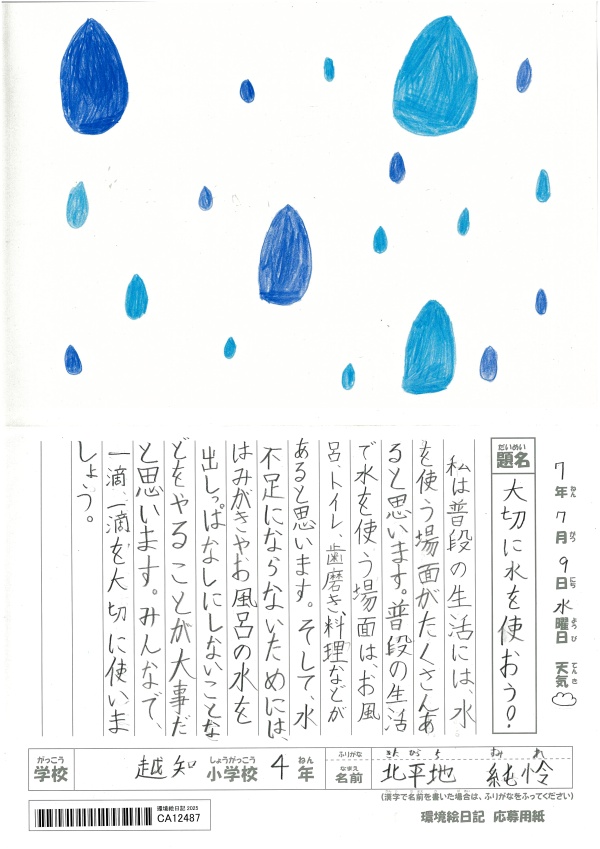 7年ねん7月がつ9日にち水曜日ようび 天気てんき
だいめい
題名
大切に水を使おう!!
私は普段の生活には、水
を使う場面がたくさんあ
ると思います。普段の生活
で水を使う場面は、お風
呂、トイレ、歯磨き、料理などが
あると思います。そして、水
不足にならないためには、
はみがきやお風呂の水を
出しっぱなしにしないことな
どをやることが大事だ
と思います。みんなで、
一滴、一滴を大切に使いま
しょう。
がっこう
学校
越知
しょうがっこう
小学校
4
ねん
年
ふりがな
なまえ
名前
きたびらち すみれ
北平地 純怜
(漢字で名前を書いた場合は、ふりがなをふってください)
環境絵日記 2025
CA12487
環境絵日記 応募用紙